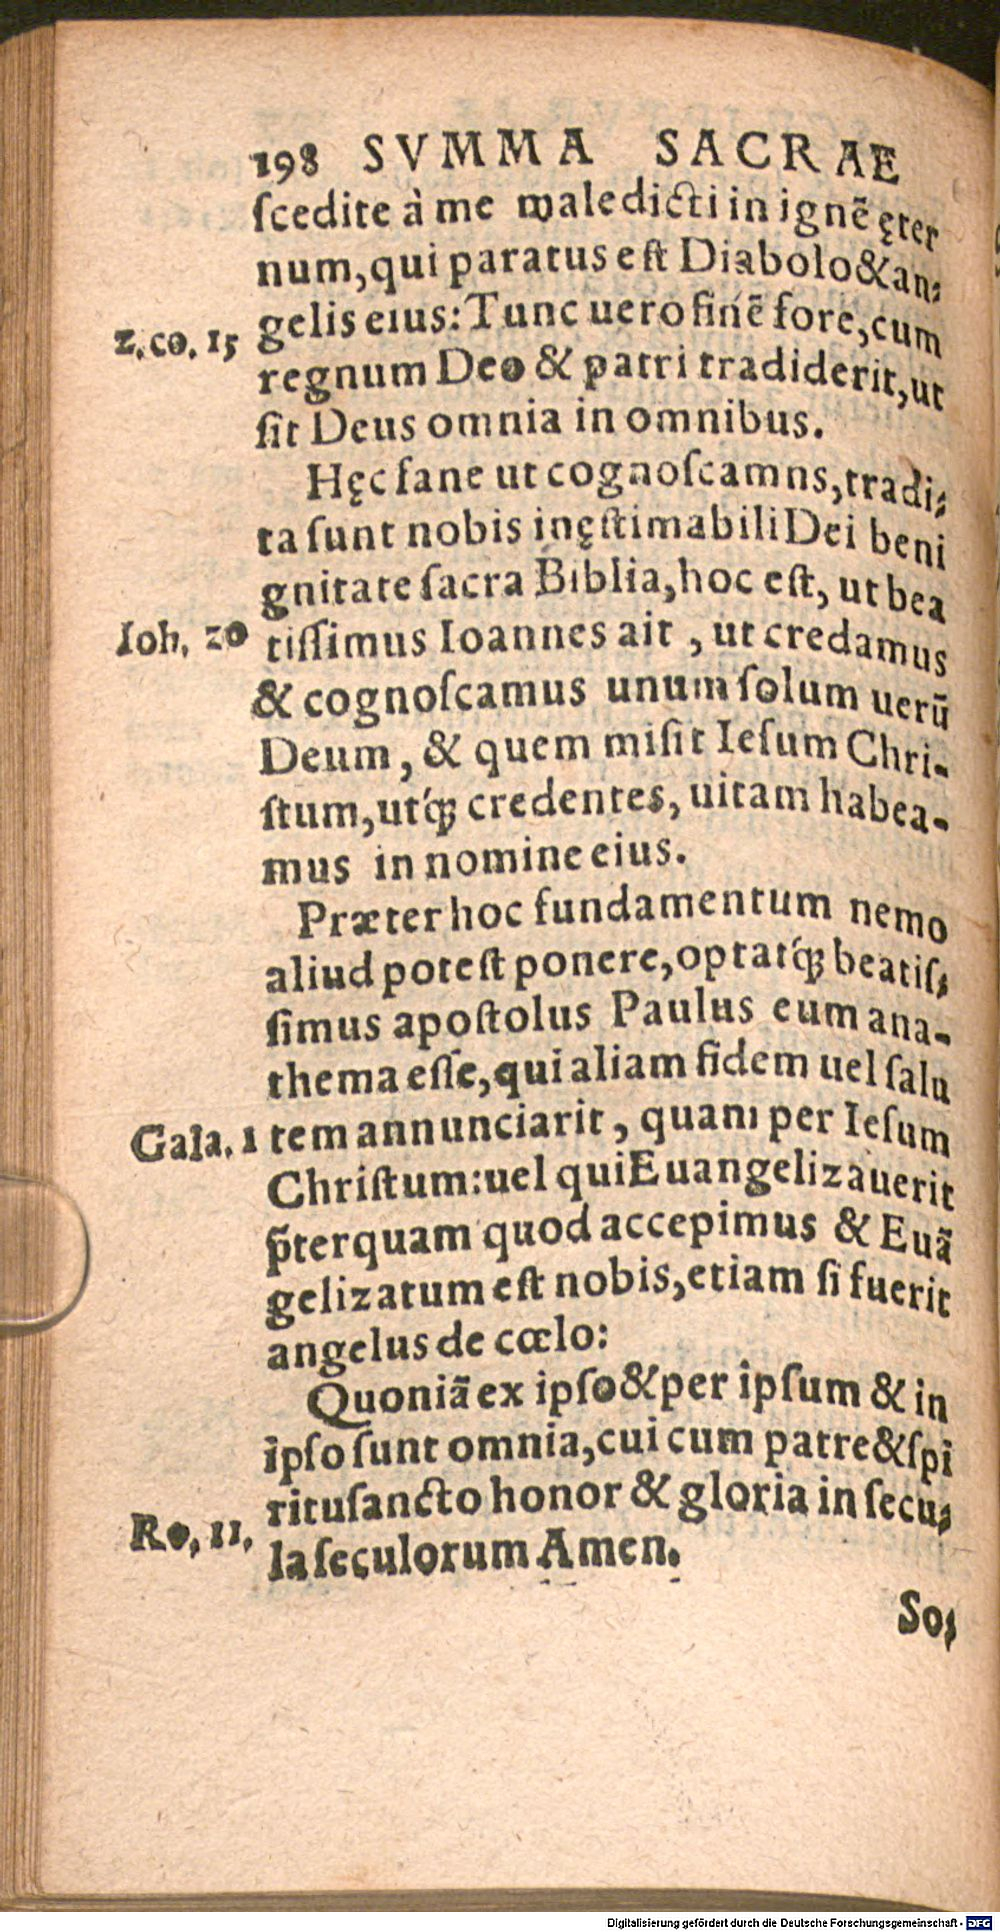 198 SVMMA SACRAE
ſcedite à me maledicti in ignē ęter
num, qui paratus eſt Diabolo & an⸗
gelis eius: Tunc uero finē fore, cum
z. co. 15
regnum Deo & patri tradiderit, ut
ſit Deus omnia in omnibus.
Hęc ſane ut cognoſcamns, tradi⸗
ta ſunt nobis inęſtimabili Dei beni
gnitate ſacra Biblia, hoc eſt, ut bea
Ioh. zo
tiſſimus Ioannes ait, ut credamus
& cognoſcamus unum ſolum uerū
Deum, & quem miſit Ieſum Chri-
ſtum, utq́ꝫ credentes, uitam habea-
mus in nomine eius.
Præter hoc fundamentum nemo
aliud poteſt ponere, optatq́ꝫ beatiſ⸗
ſimus apoſtolus Paulus eum ana-
thema eſſe, qui aliam fidem uel ſalu
Gala. 1
tem annunciarit, quam per Ieſum
Chriſtum: uel qui Euangelizauerit
p̃terquam quod accepimus & Euã
gelizatum eſt nobis, etiam ſi fuerit
angelus de cœlo:
Quoniã ex ipſo & per ipſum & in
ipſo ſunt omnia, cui cum patre & ſpi
rituſancto honor & gloria in ſecu⸗
Ro, 11.
la ſeculorum Amen.
So⸗
Digitalisierung gefördert durch die Deutsche Forschungsgemeinschaft - DFG